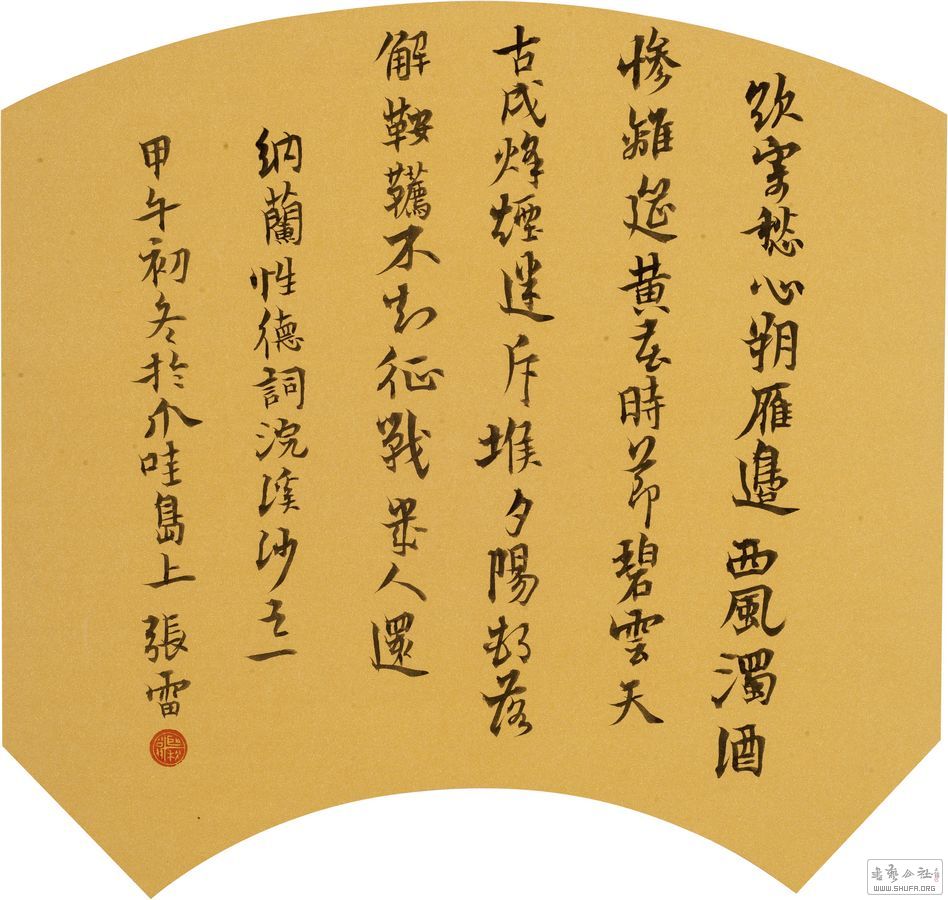 欲寄愁心朔雁邊西風濁酒
慘離筵黃花時節碧雲天
古戍烽煙迷斥堠夕陽邨落
解鞍韉不知征戰幾人還
納蘭性德詞浣溪沙之一
甲午初冬於爪哇島上 張雷
书艺公社
WWW.SHUFA.ORG